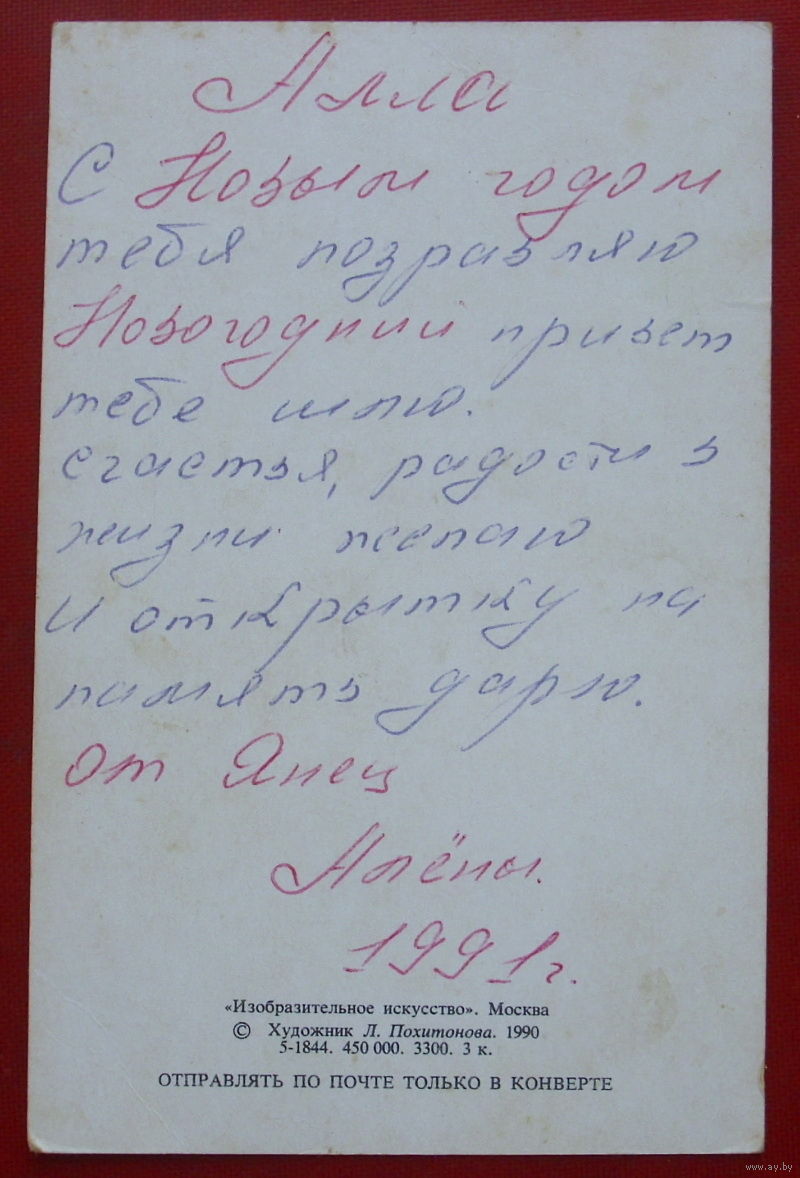 Алла
С Новым годом
тебя поздравляю
Новогодний привет
тебе шлю.
счастья, радости в
жизни желаю
И открытку на
память дарю.
от Янец
Алёны.
1991г.
«Изобразительное искусство». Москва
© Художник Л. Похитонова. 1990
5-1844. 450 000. 3300. 3 к.
ОТПРАВЛЯТЬ ПО ПОЧТЕ ТОЛЬКО В КОНВЕРТЕ
www.ay.by